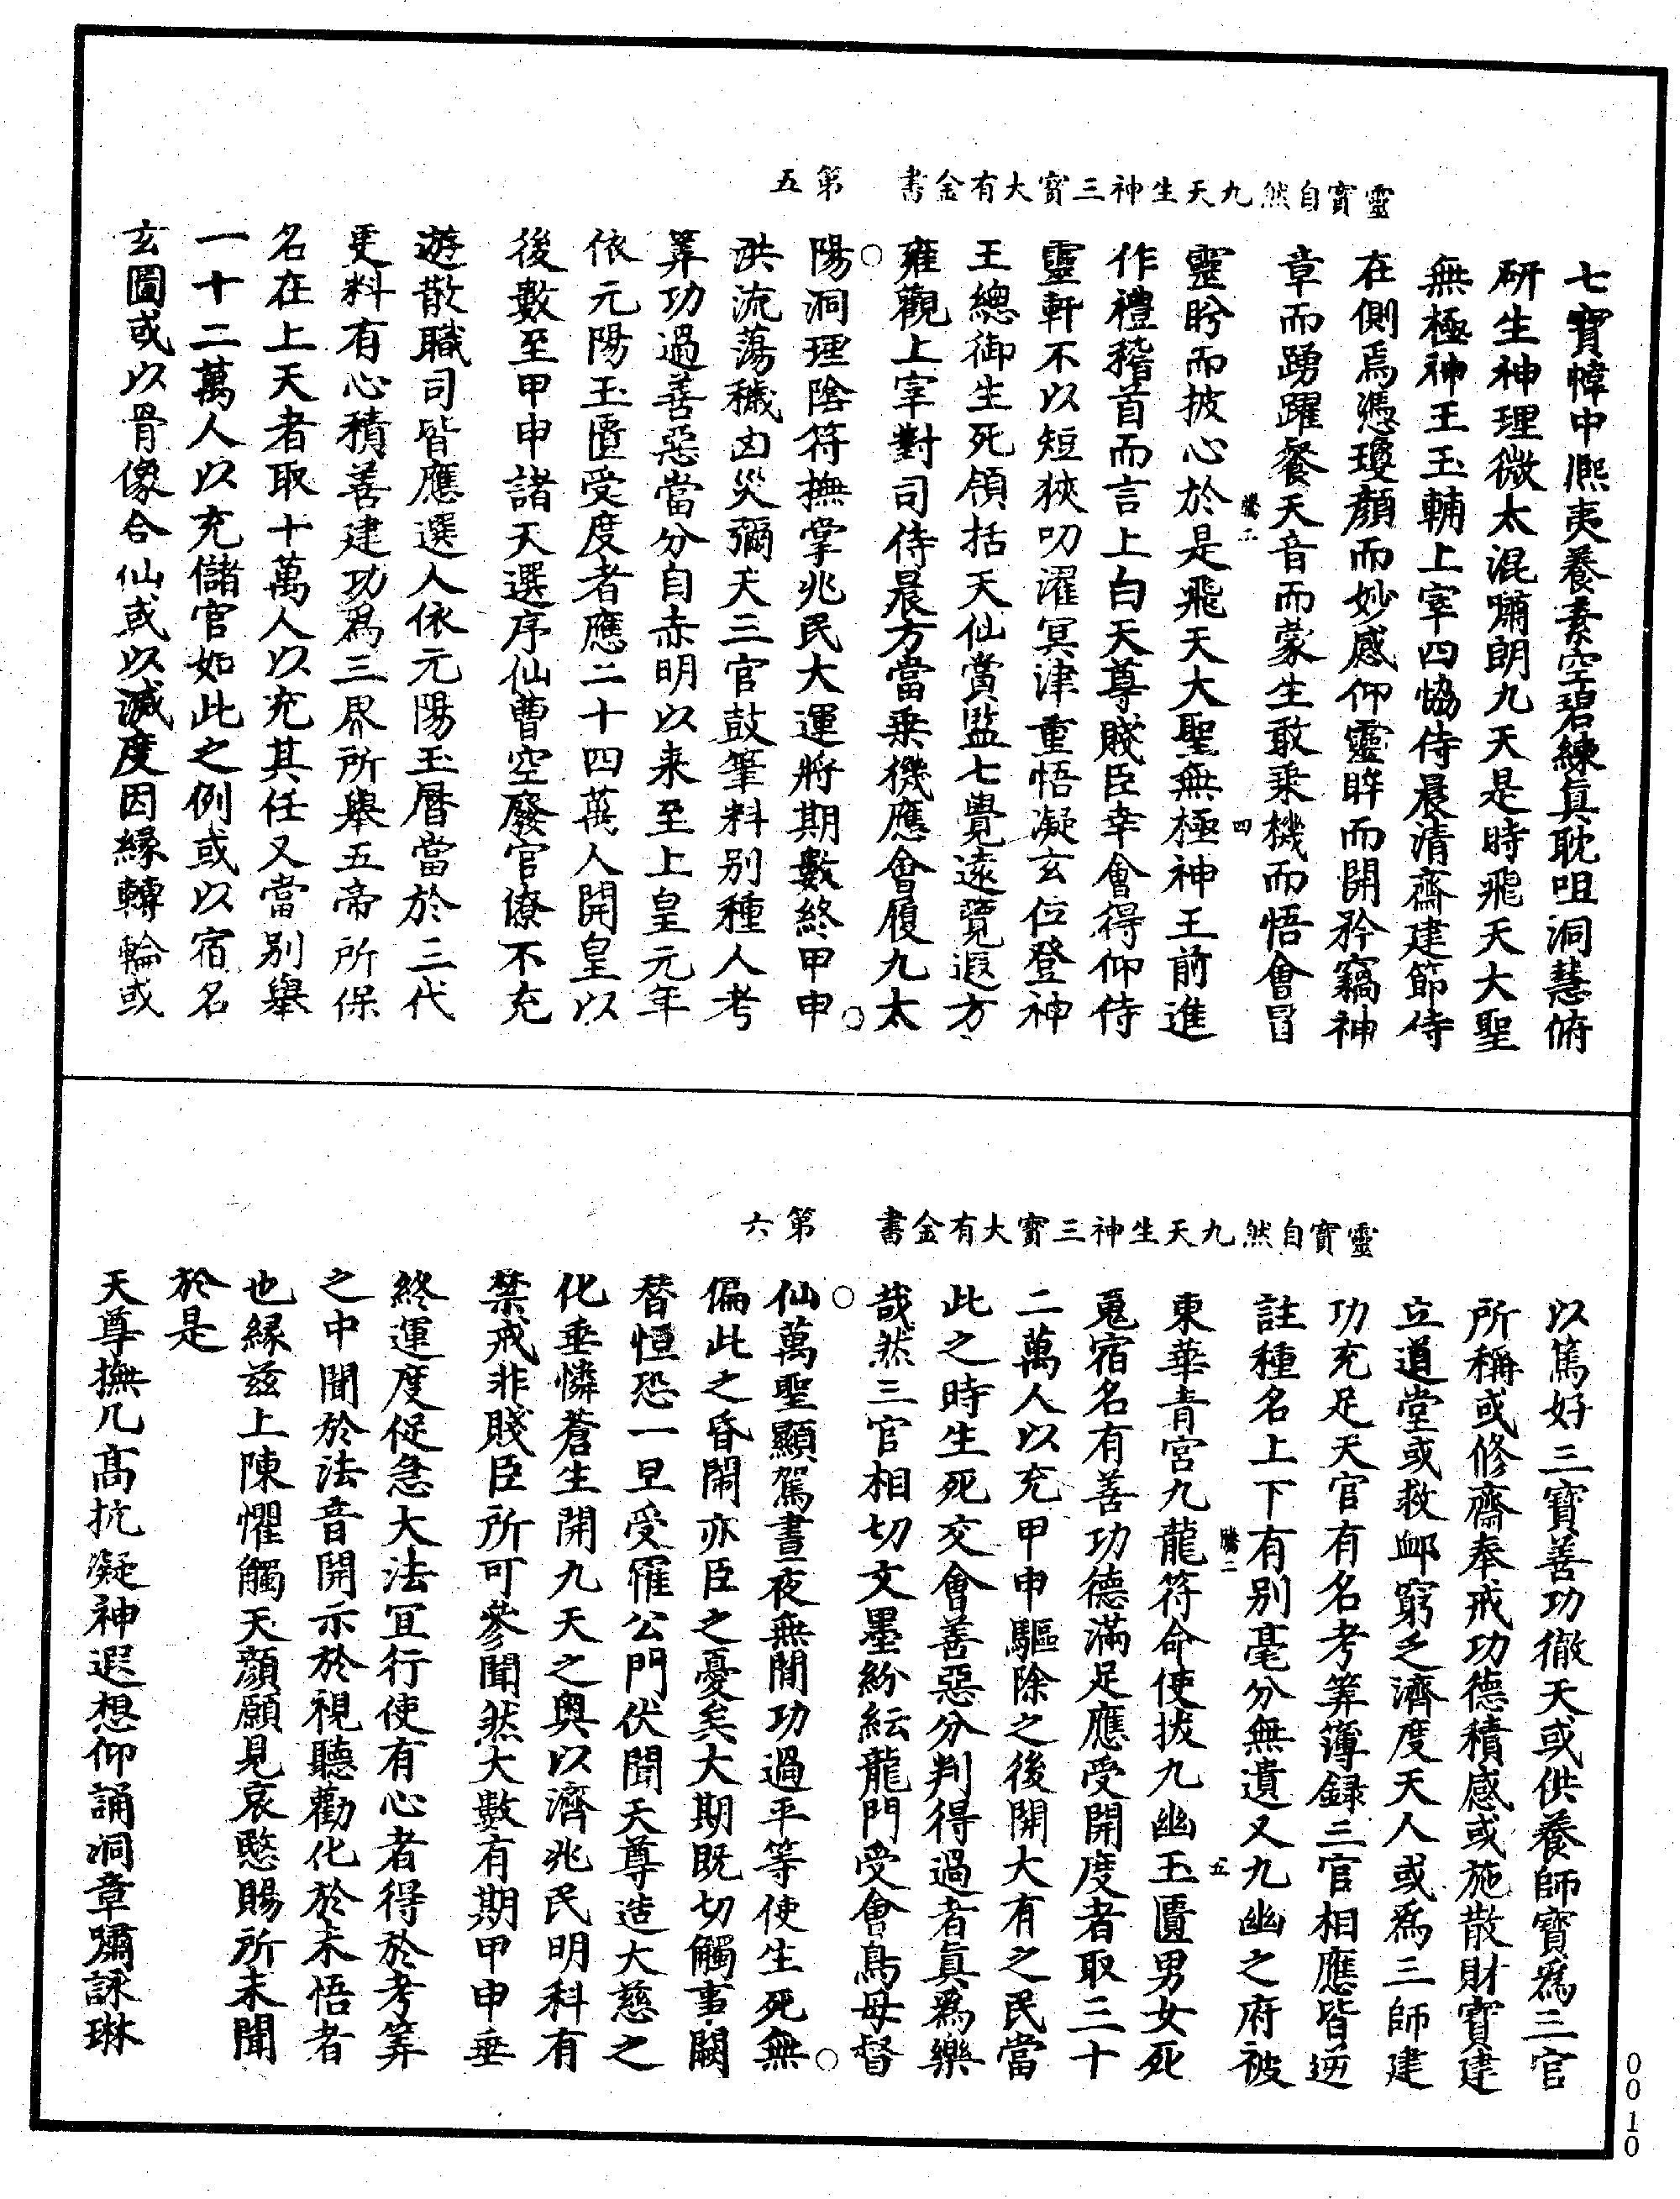 靈寳自然九天生神三寳大有金書　第五
七寳幃中凞夷養素空碧練真耽咀洞慧俯
研生神理微太混嘯朗九天是時飛天大聖
無極神王玉輔上宰四協侍晨清齋建節侍
在側焉憑瓊顔而妙感仰靈眸而開矜竊神
章而踴躍餐天音而蒙生敢乗機而悟㑹冒
騰二　四
靈盻而披心於是飛天大聖無極神王前進
作禮稽首而言上白天尊賤臣幸會得仰侍
靈軒不以短狹叨濯冥津重悟凝玄位登神
王總御生死領括天仙賞監七覺逺覽遐方
雍觀上宰對司侍晨方當乗機應會履九太
陽洞理陰符撫掌兆民大運將期數終甲申
洪流蕩穢凶災彌天三官鼓筆料别種人考
筭功過善惡當分自赤明以来至上皇元年
依元陽玉匱受度者應二十四萬人開皇以
後數至甲申諸天選序仙曹空廢官僚不充
遊散職司皆應選人依元陽玉曆當於三代
更料有心積善建功爲三界所舉五帝所保
名在上天者取十萬人以充其任又當别舉
一十二萬人以充儲官如此之例或以宿名
玄圖或以骨像合仙或以滅度因緣轉輪或
靈寳自然九天生神三寳大有金書　第六
以篤好三寳善功徹天或供養師寳爲三官
所稱或修齋奉戒功德積感或施散財寳建
立道堂或救卹窮乏濟度天人或爲三師建
功充足天官有名考筭簿録三官相應皆逆
註種名上下有别毫分無遺又九幽之府被
騰二　五
東華青宮九龍符命使拔九幽玉匱男女死
䰟宿名有善功德滿足應受開度者取三十
二萬人以充甲申驅除之後開大有之民當
此之時生死交會善惡分判得過者真爲樂
哉然三官相切文墨紛紜龍門受會鳥母督
仙萬聖顯駕晝夜無閒功過平等使生死無
偏此之昏閙亦臣之憂矣大期既切觸事闕
替恒恐一旦受罹公門伏聞天尊造大慈之
化垂憐蒼生開九天之奥以濟兆民明科有
禁戒非賤臣所可參聞然大數有期甲申垂
終運度促急大法宜行使有心者得於考筭
之中聞於法音開示於視聽勸化於未悟者
也緣兹上陳懼觸天顔願見哀愍賜所未聞
於是
天尊撫几髙抗凝神遐想仰誦洞章嘯詠琳
0010